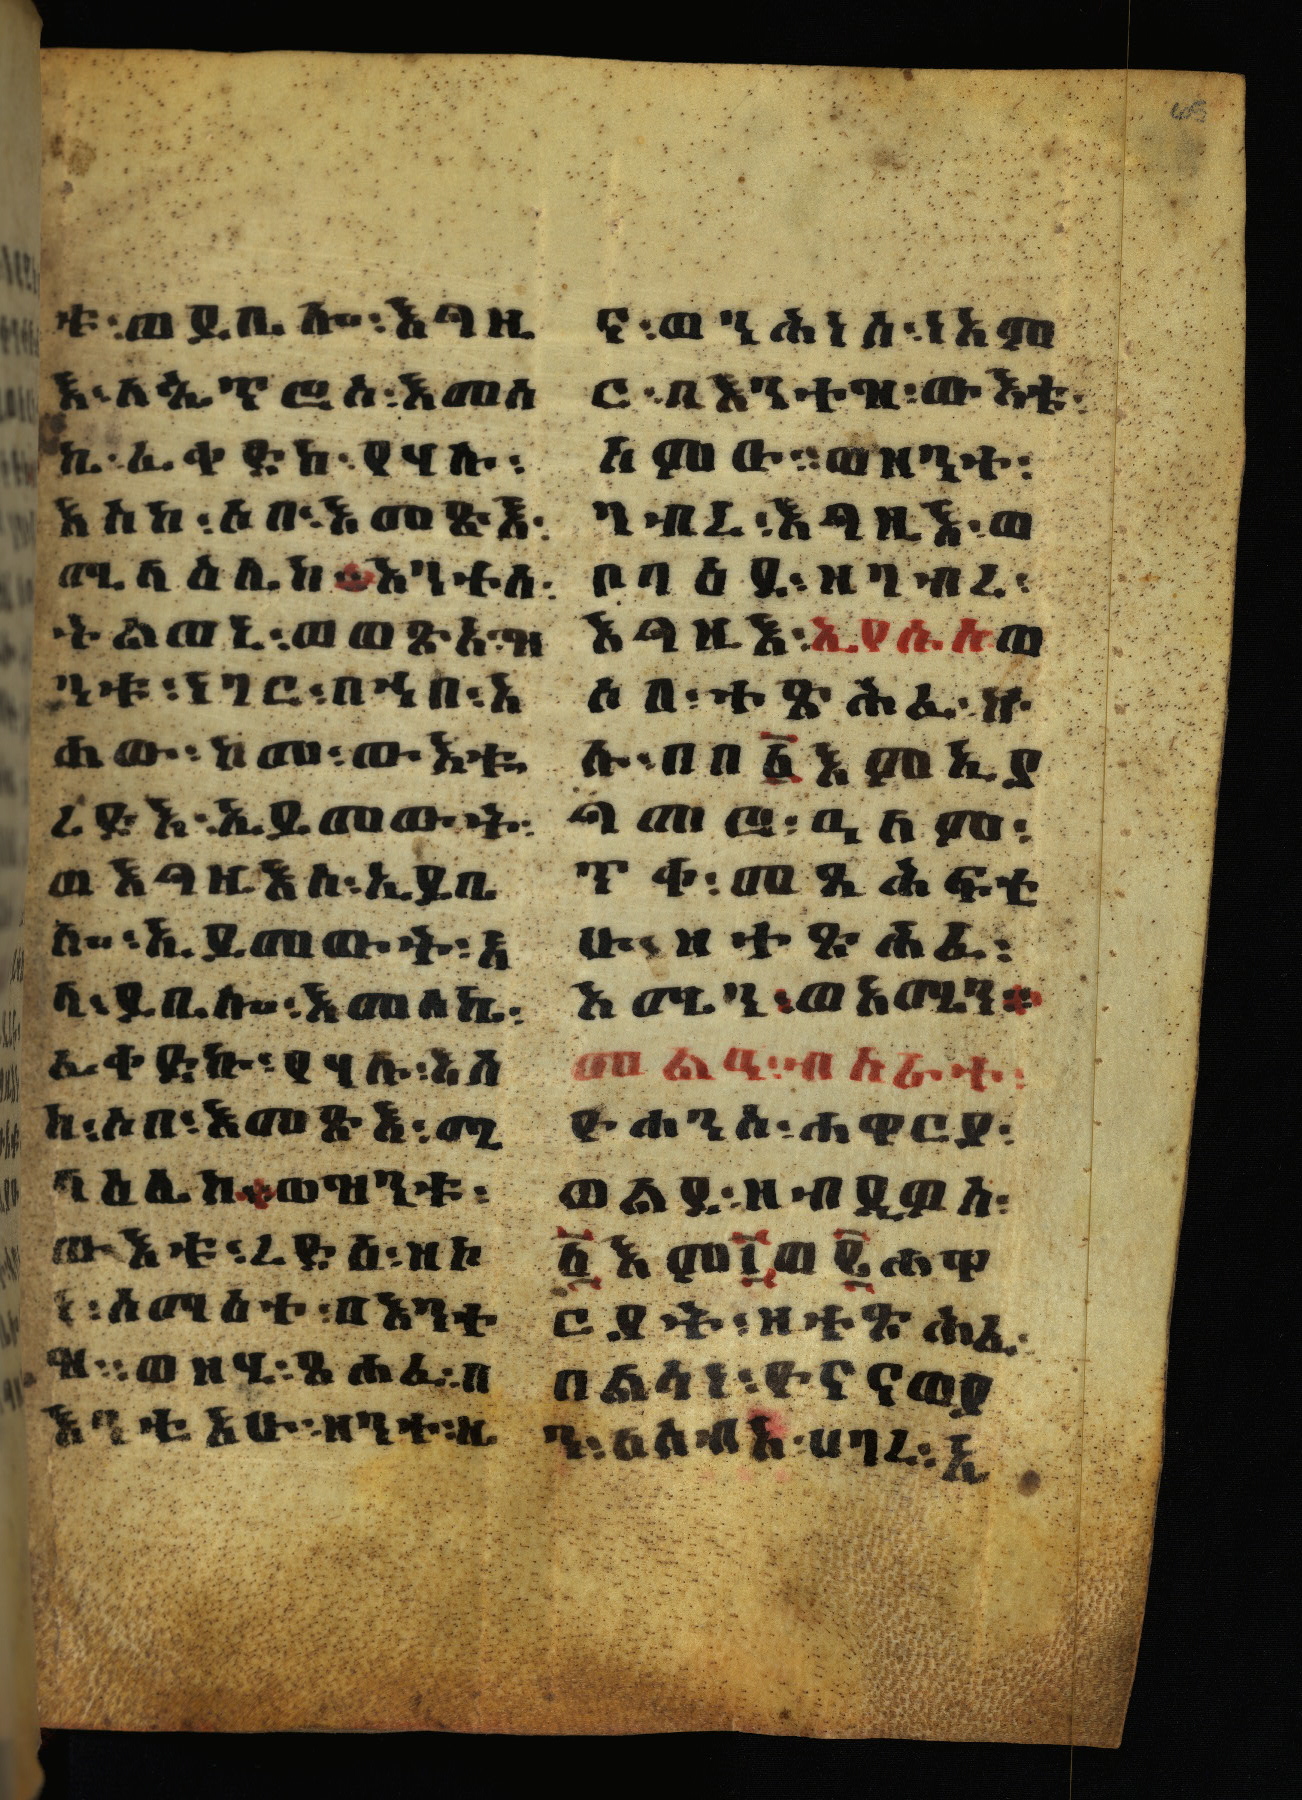 ቱ፡ወይቤሎ፡እግዚ
እ፡ለጴጥሮስ፡እመሰ
ኪ፡ፈቀድኩ፡የሃሉ፡
እስከ፡ሶበ፡እመጽእ፡
ሚላዕሌከ፡አንተሰ፡
ትልወኒ፡ወወጽአ፡ዝ
ንቱ፡ነገር፡በኀበ፡አ
ሐው፡ከመ፡ውእቱ
ረድእ፡ኢይመውት፡
ወእግዚእሰ፡ኢይቤ
ሎ፡ኢይመውት፡አ
ላ፡ይቤሎ፡እመሰኬ፡
ፈቀድኩ፡የሃሉ፡እስ
ከ፡ሶበ፡እመጽእ፡ሚ
ላዕሌከ፡ወዝንቱ፡
ውእቱ፡ረድእ፡ዘኮ
ነ፡ሰማዕተ፡በእንተ
ዝ፡ወዘሂ፡ጸሐፈ፡በ
እንቲአሁ፡ዘንተ፡ዜ
ና፡ወንሕነሰ፡ነአም
ር፡በእንተዝ፡ውእቱ፡
አምው፡ወዘንተ፡
ገብረ፡እግዚእ፡ወ
ቦባዕደ፡ዘገብረ፡
እግዚእ፡ኢየሱስወ
ሶበ፡ተጽሕፈ፡ኵ
ሉ፡በበ፩እምኢያ
ግመሮ፡ዓለም፡
ጥቀ፡መጻሕፍቲ
ሁ፡ዘተጽሕፈ፡
አሜን፡ወአሜን፡
መልዓ፡ብስራተ፡
ዮሐንስ፡ሐዋርያ፡
ወልደ፡ዘብዴዎስ፡
፩እም፲ወ፪ሐዋ
ርያት፡ዘተጽሕፈ፡
በልሳነ፡ዮናናወያ
ን፡ሰለብአ፡ሀገረ፡ኤ